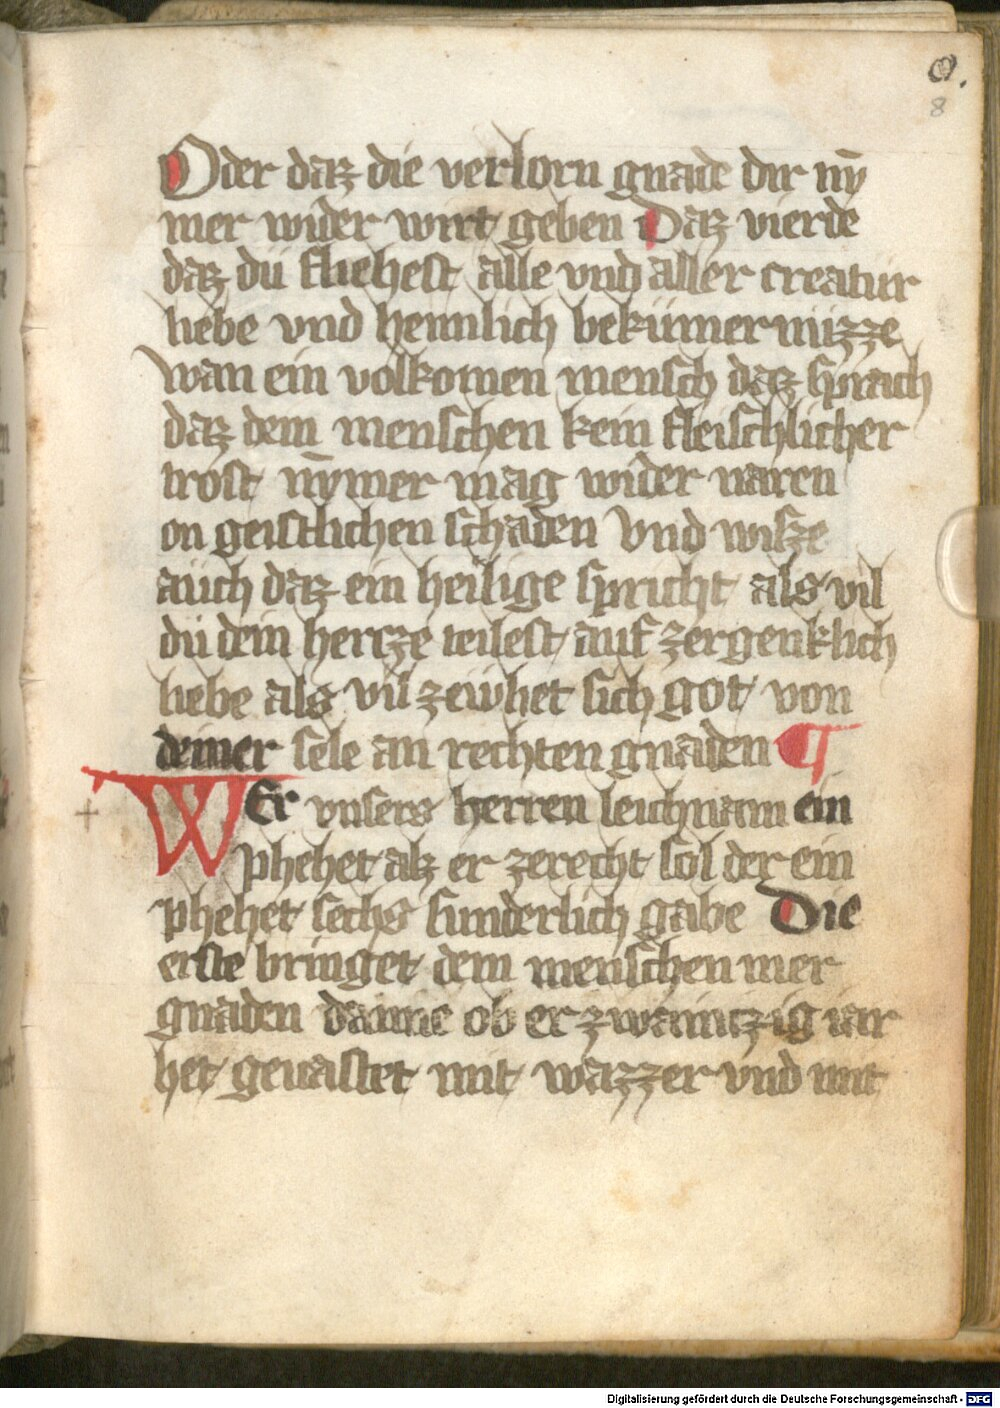 a.
8
Oder daz die verlorn gnade dir ny̅
mer wider wirt geben Daz vierde
daz du fliehest alle vnd aller creatur
liebe vnd heimlich bekümernüzze
wan ein volkomen mensch daz sprach
daz dem menschen kein fleischlicher
trost ny̅mer mag wider varen
on geistlichen schaden Vnd wisze
auch daz ein heilige spricht als vil
du dein hercze teilest auf zergenklich
liebe als vil zeuhet sich got von
deiner sele an rechten gnaden ¶
WEr vnsers herren leichnam ein
phehet alz er zerecht sol der ein
phehet sechs sunderlich gabe Die
erste bringet dem menschen mer
gnaden danne ob er zwaintzig iar
het geuastet mit wazzer vnd mit
Digitalisierung gefördert durch die Deutsche Forschungsgemeinschaft - DFG